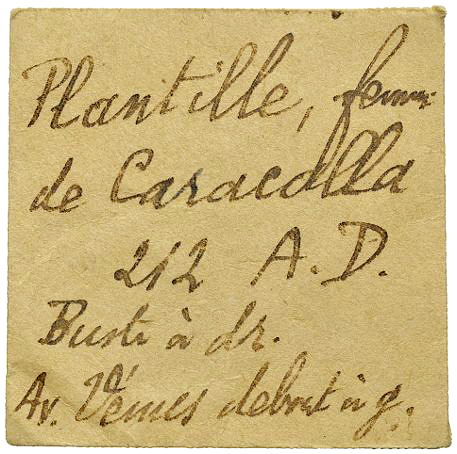 Plantille, femme
de Caracalla
212 A.D.
Buste à dr.
Av. Vénus debout à g.